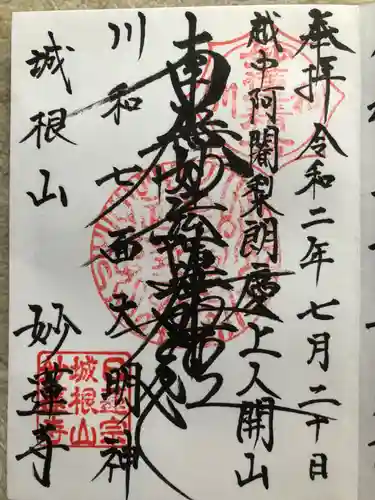 奉拝 令和二年七月二十日
越中阿闍梨朗慶上人開山
南無妙法蓮華経
川和七面大明神
城根山 妙蓮寺
日蓮宗
城根山
妙蓮寺